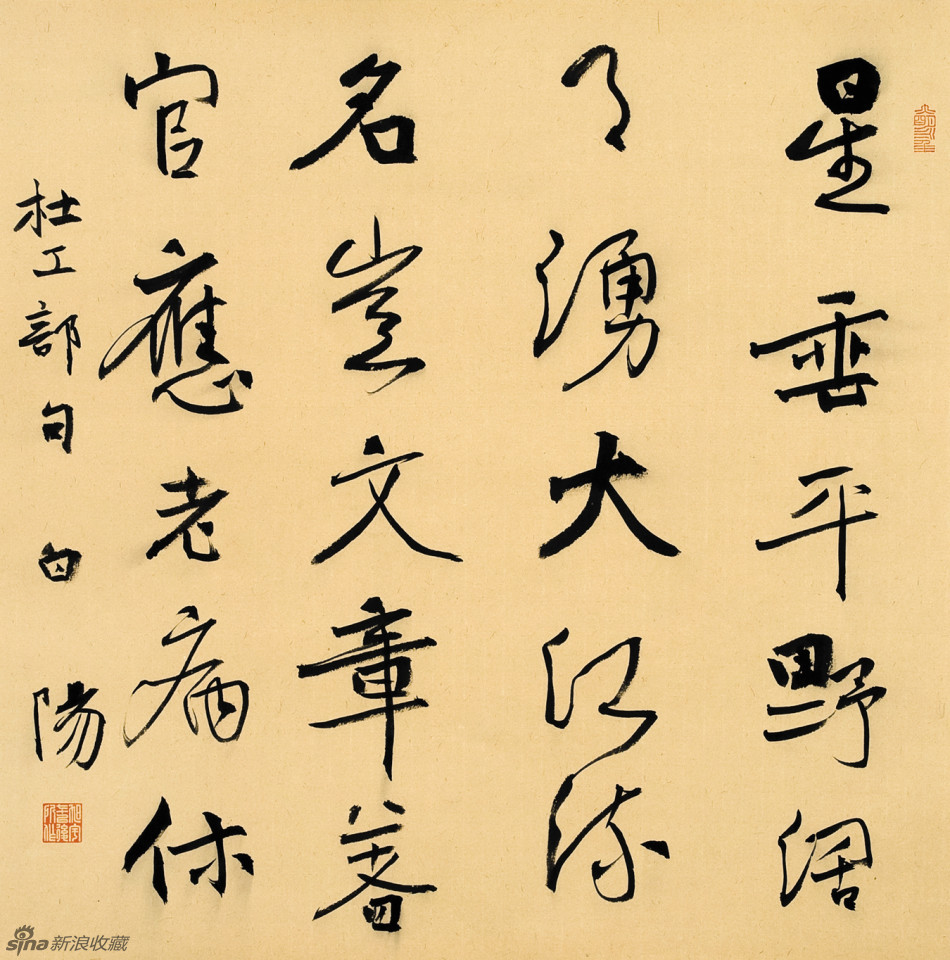 星垂平野闊
月湧大江流
名豈文章著
官應老病休
杜工部句 白
陽
sina新浪收藏